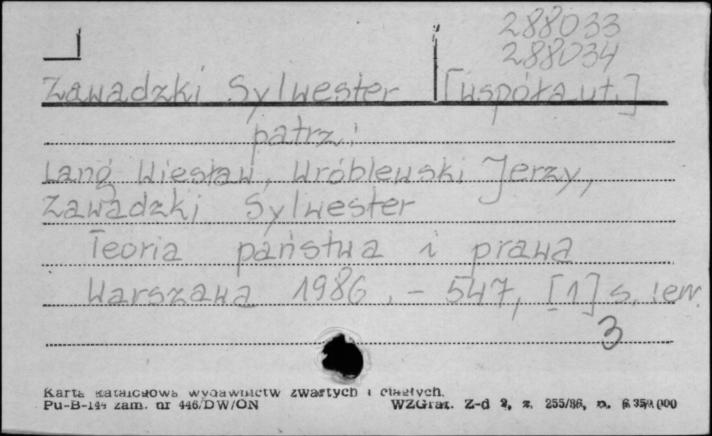 288033
288034
Zawadzki Sylwester [współaut.]
patrz:
Lang Wiesław, Wróblewski Jerzy,
Zawadzki Sylwester
Teoria państwa i prawa
Warszawa 1986. - 547, [1] s. ; err.
3
Karta katalogowa wydawnictw zwartych i ciągłych.
Pu-B-144 zam. nr 446/DW/ON WZGraf. Z-d 2, z. 255/86, n. 6 350 000